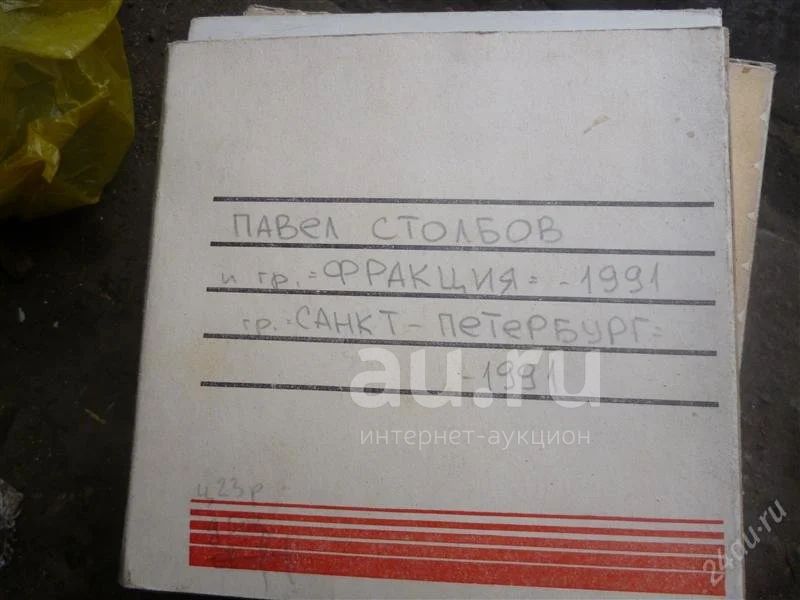 ПАВЕЛ СТОЛБОВ
и гр. "ФРАКЦИЯ" - 1991
гр. "САНКТ - ПЕТЕРБУРГ"
- 1991
au.ru
интернет-аукцион
ц 23 р
24au.ru